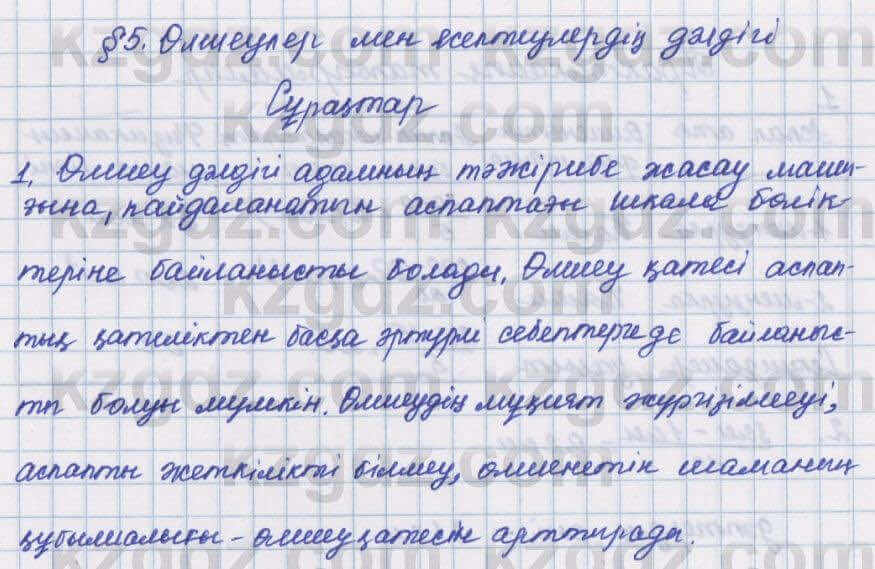 §5. Өлшеулер мен есептеулердің дәлдігі
Сұрақтар
1. Өлшеу дәлдігі адамның тәжірибе жасау машы-
ғына, пайдаланатын аспаптағы шкала бөлік-
теріне байланысты болады. Өлшеу қатесі аспап-
тық қателіктен басқа әртүрлі себептерге де байланыс-
ты болуы мүмкін. Өлшеудің мұқият жүргізілмеуі,
аспапты жеткілікті білмеу, өлшенетін шаманың
құбылмалығы - өлшеу қатесін арттырады.